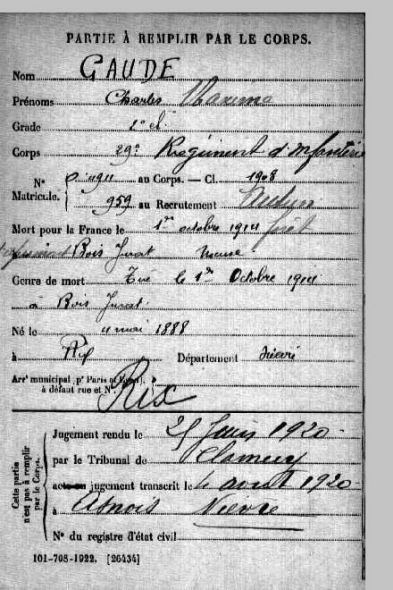 PARTIE À REMPLIR PAR LE CORPS.
Nom GAUDE
Prénoms Charles Maxime
Grade 2e cl.
Corps 29e Régiment d'Infanterie
N° au Corps. — Cl. 1908
Matricule. 959 au Recrutement
Mort pour la France le 1er octobre 1914
Bois Jurat Meuse
Genre de mort Tué le 1er Octobre 1914
à Bois Jurat.
Né le 4 mai 1888
à Rix Département Nièvre
Arrt municipal (pr Paris et Lyon),
à défaut rue et N°.
Rix
Cette partie n'est pas à remplir par le Corps.
Jugement rendu le 25 Juin 1920
par le Tribunal de Clamecy
acte ou jugement transcrit le août 1920
à Asnois Nièvre
N° du registre d'état civil
101-708-1922. [26434]